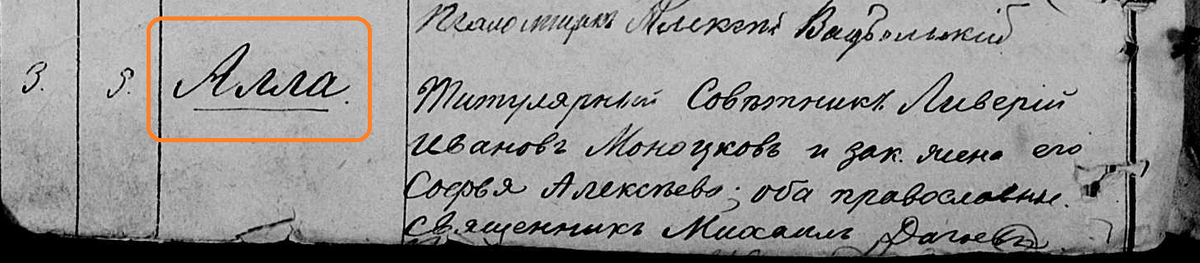 Псаломщикъ Алексѣй
3. 5. Алла.
Титулярный Совѣтникъ Ливерій
Ивановъ Моноцковъ и зак. жена его
Софья Алексѣева; оба православные.
Священникъ Михаилъ